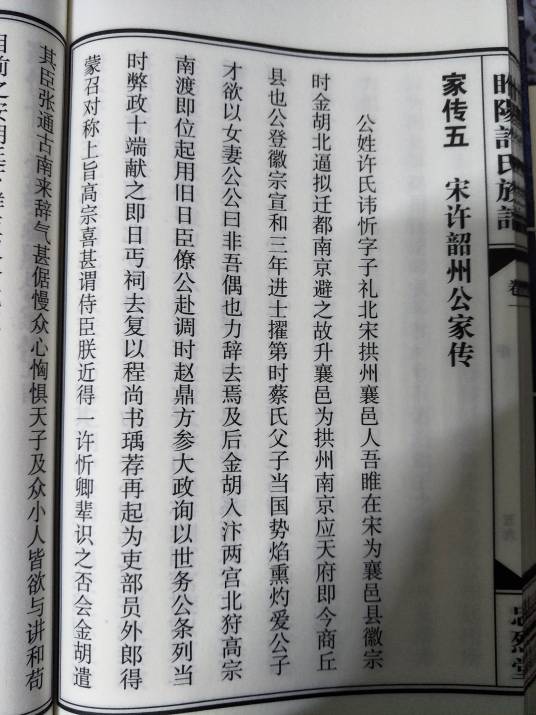 睢陽許氏族譜
忠烈堂
家传五　宋许韶州公家传
公姓许氏讳忻字子礼北宋拱州襄邑人吾睢在宋为襄邑县徽宗
时金胡北逼拟迁都南京避之故升襄邑为拱州南京应天府即今商丘
县也公登徽宗宣和三年进士擢第时蔡氏父子当国势焰熏灼爱公子
才欲以女妻公公曰非吾偶也力辞去焉及后金胡入汴两宫北狩高宗
南渡即位起用旧日臣僚公赴调时赵鼎方参大政询以世务公条列当
时弊政十端献之即日丐祠去复以程尚书瑀荐再起为吏部员外郎得
蒙召对称上旨高宗喜甚谓侍臣朕近得一许忻卿辈识之否会金胡遣
其臣张通古南来辞气甚倨慢众心恟惧天子及众小人皆欲与讲和苟
目前之安